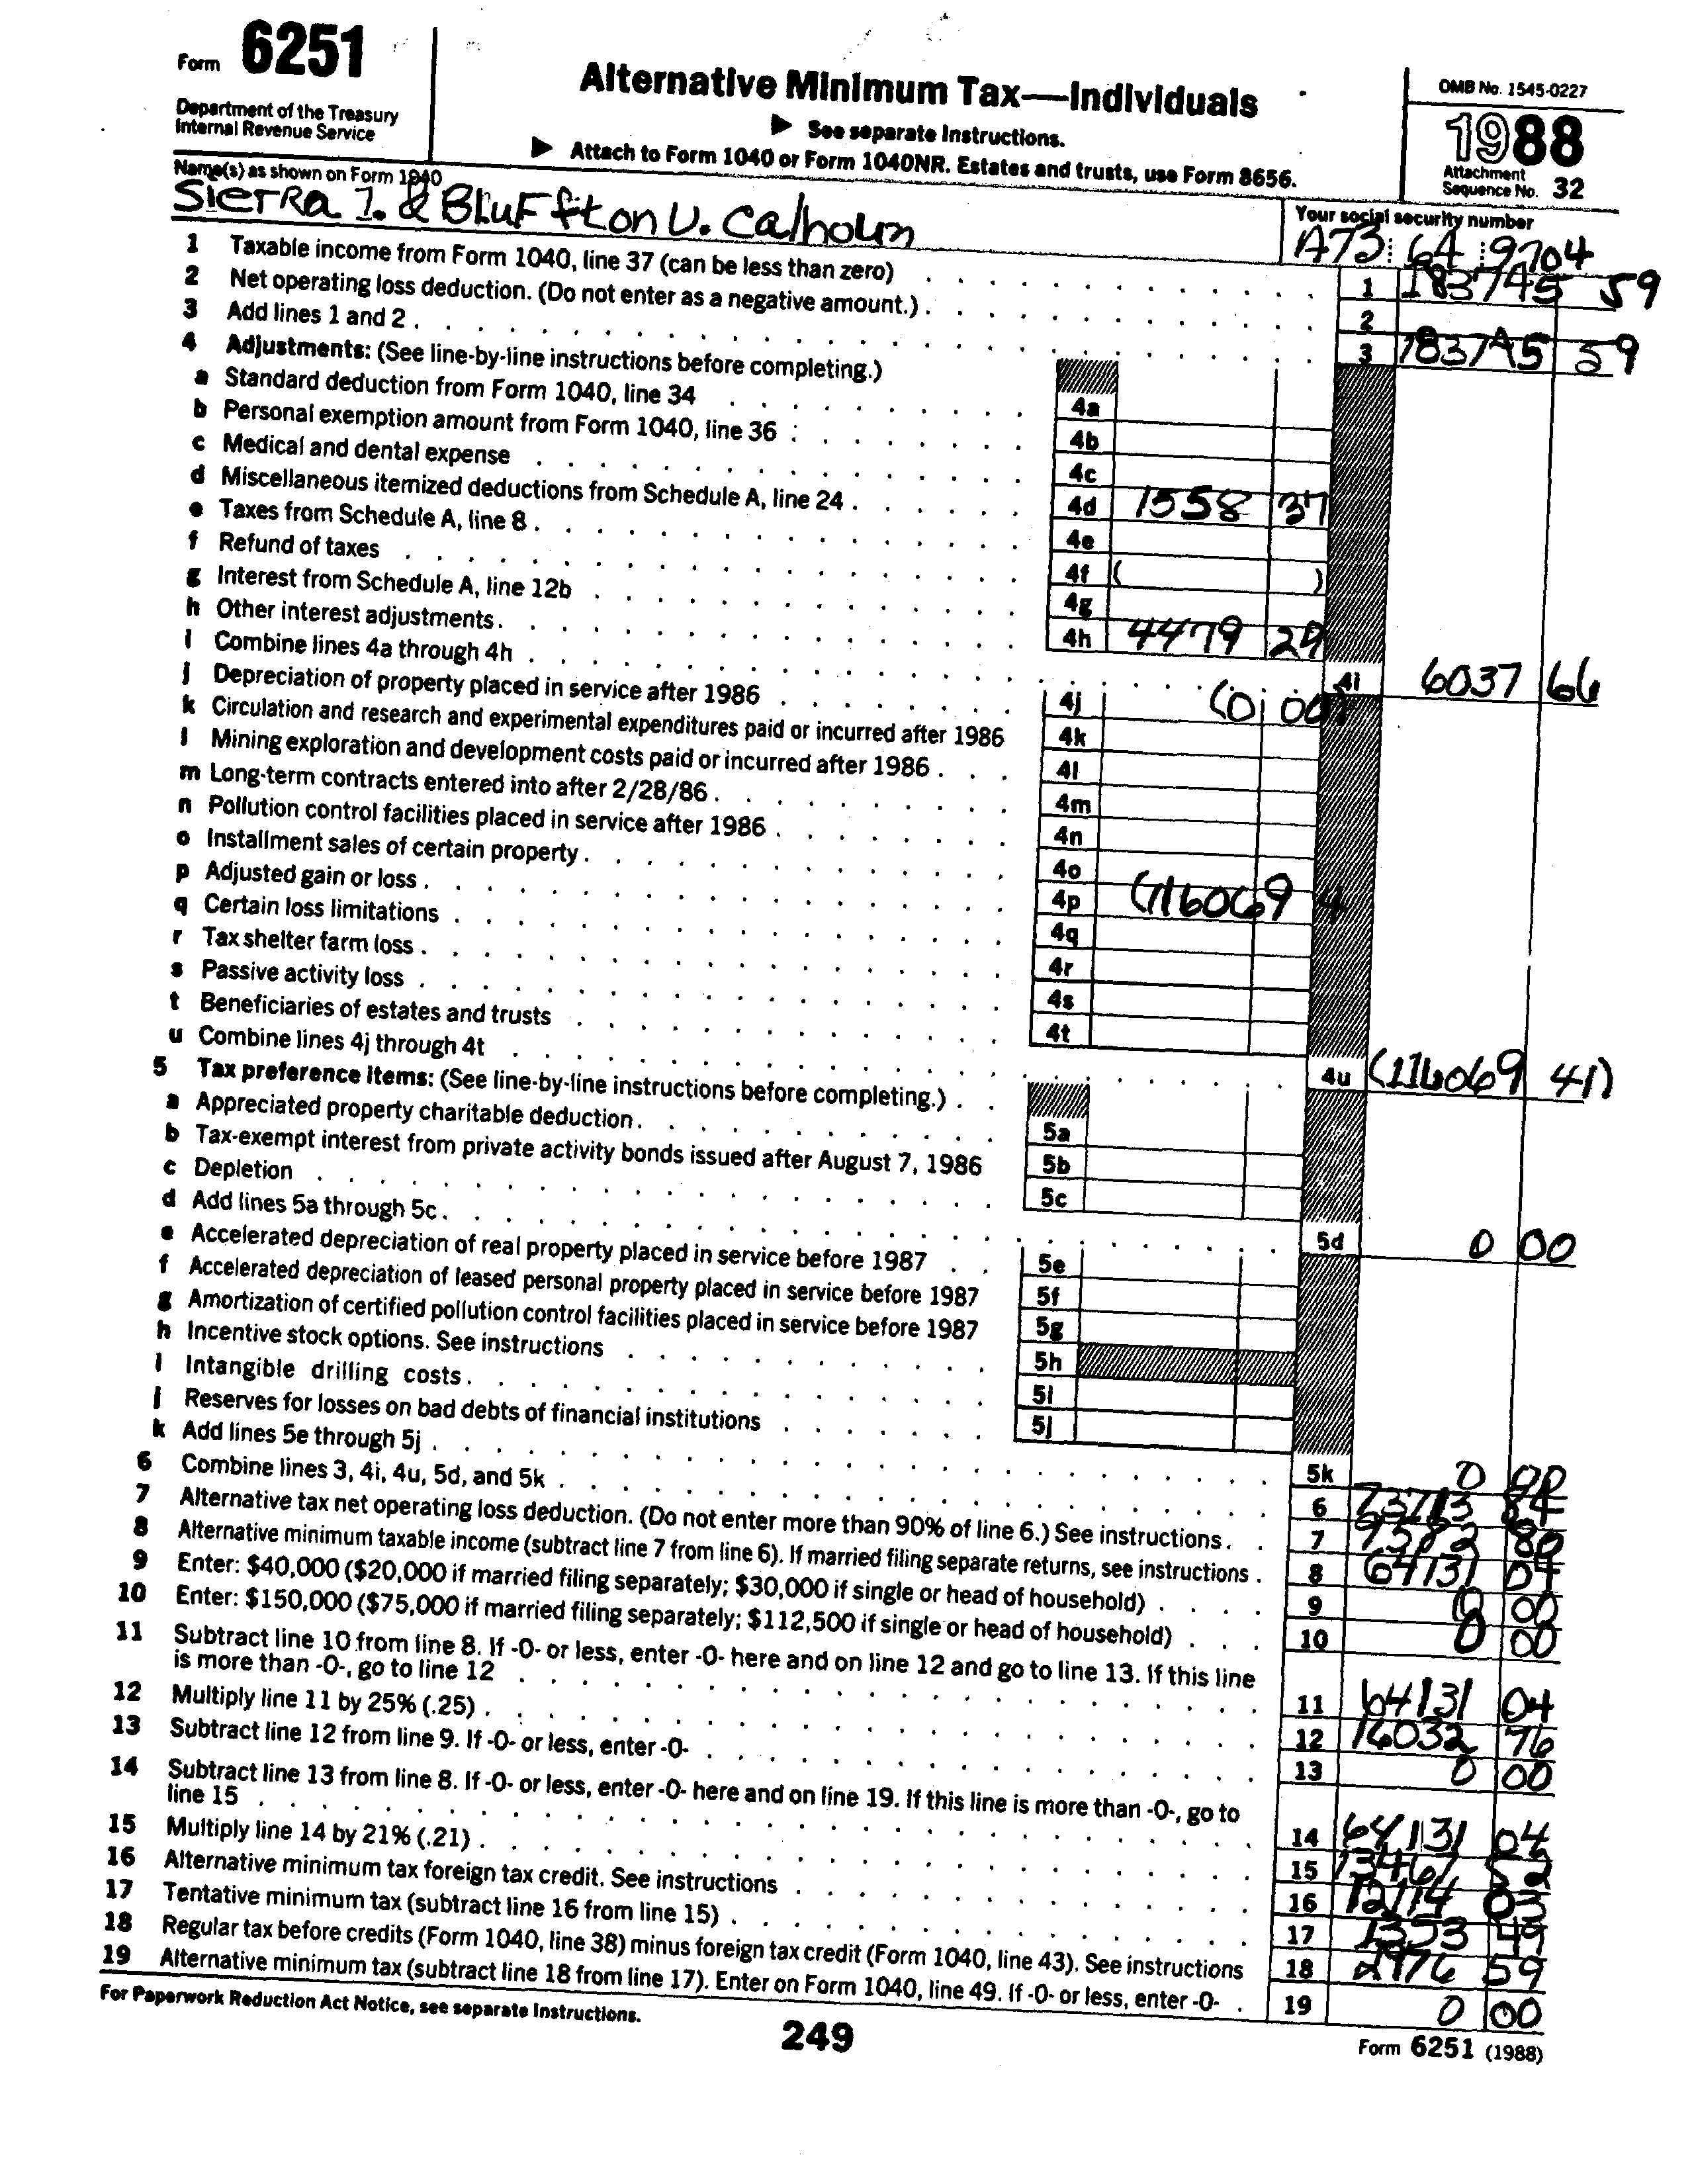 Form 6251
Department of the Treasury
Internal Revenue Service
Alternative Minimum Tax—Individuals
▶ See separate Instructions.
▶ Attach to Form 1040 or Form 1040NR. Estates and trusts, use Form 8656.
OMB No. 1545-0227
1988
Attachment
Sequence No. 32
Name(s) as shown on Form 1040
Sierra J. & Bluffton U. Calhoun
Your social security number
A73 64 9704
1 Taxable income from Form 1040, line 37 (can be less than zero) 1 183745 59
2 Net operating loss deduction. (Do not enter as a negative amount.) 2
3 Add lines 1 and 2 3 183745 59
4 Adjustments: (See line-by-line instructions before completing.)
a Standard deduction from Form 1040, line 34 4a
b Personal exemption amount from Form 1040, line 36 4b
c Medical and dental expense 4c
d Miscellaneous itemized deductions from Schedule A, line 24 4d 1558 37
e Taxes from Schedule A, line 8 4e
f Refund of taxes 4f ( )
g Interest from Schedule A, line 12b 4g
h Other interest adjustments 4h 4479 29
i Combine lines 4a through 4h 4i 6037 66
j Depreciation of property placed in service after 1986 4j (0 00)
k Circulation and research and experimental expenditures paid or incurred after 1986 4k
l Mining exploration and development costs paid or incurred after 1986 4l
m Long-term contracts entered into after 2/28/86 4m
n Pollution control facilities placed in service after 1986 4n
o Installment sales of certain property 4o
p Adjusted gain or loss 4p (116069 4
q Certain loss limitations 4q
r Tax shelter farm loss 4r
s Passive activity loss 4s
t Beneficiaries of estates and trusts 4t
u Combine lines 4j through 4t 4u (116069 41)
5 Tax preference items: (See line-by-line instructions before completing.)
a Appreciated property charitable deduction 5a
b Tax-exempt interest from private activity bonds issued after August 7, 1986 5b
c Depletion 5c
d Add lines 5a through 5c 5d 0 00
e Accelerated depreciation of real property placed in service before 1987 5e
f Accelerated depreciation of leased personal property placed in service before 1987 5f
g Amortization of certified pollution control facilities placed in service before 1987 5g
h Incentive stock options. See instructions 5h
i Intangible drilling costs 5i
j Reserves for losses on bad debts of financial institutions 5j
k Add lines 5e through 5j 5k 0 00
6 Combine lines 3, 4i, 4u, 5d, and 5k 6 73713 84
7 Alternative tax net operating loss deduction. (Do not enter more than 90% of line 6.) See instructions 7 9582 80
8 Alternative minimum taxable income (subtract line 7 from line 6). If married filing separate returns, see instructions 8 64131 04
9 Enter: $40,000 ($20,000 if married filing separately; $30,000 if single or head of household) 9 0 00
10 Enter: $150,000 ($75,000 if married filing separately; $112,500 if single or head of household) 10 0 00
11 Subtract line 10 from line 8. If -0- or less, enter -0- here and on line 12 and go to line 13. If this line
is more than -0-, go to line 12 11 64131 04
12 Multiply line 11 by 25% (.25) 12 16032 76
13 Subtract line 12 from line 9. If -0- or less, enter -0- 13 0 00
14 Subtract line 13 from line 8. If -0- or less, enter -0- here and on line 19. If this line is more than -0-, go to
line 15 14 64131 04
15 Multiply line 14 by 21% (.21) 15 13467 52
16 Alternative minimum tax foreign tax credit. See instructions 16 12114 03
17 Tentative minimum tax (subtract line 16 from line 15) 17 1353 49
18 Regular tax before credits (Form 1040, line 38) minus foreign tax credit (Form 1040, line 43). See instructions 18 2976 59
19 Alternative minimum tax (subtract line 18 from line 17). Enter on Form 1040, line 49. If -0- or less, enter -0- 19 0 00
For Paperwork Reduction Act Notice, see separate Instructions.
249
Form 6251 (1988)